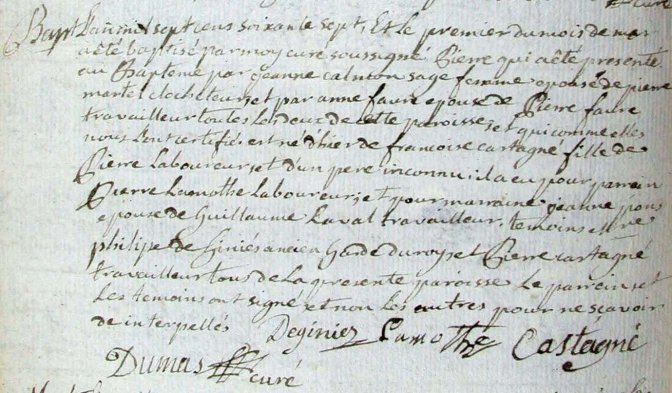 Bapt. L'an mil sept cens soixante sept, Et le premier du mois de mar
a été baptisé par moy curé soussigné Pierre qui a été presenté
au Bapteme par jeanne calmon sage femme epouse de pierre
martel clocheteur, et par anne faure epouse de Pierre faure
travailleur toutes les deux de cette paroisse, et qui comme elles
nous l'ont certifiés est né d'hier de francoise castagné fille de
Pierre Laboureur, et d'un pere inconnu; il a eu pour parrain
Pierre Lamothe Laboureur; et pour marraine jeanne pons
epouse de Guillaume Laval travailleur. temoins
philipe de Giniés ancien Garde du roy, et Pierre castagné
travailleur tous de la presente paroisse Le parrein, et
Les temoins ont signé et non les autres pour ne scavoir
de interpellés
Deginiez Lamothe Castagné
Dumas curé